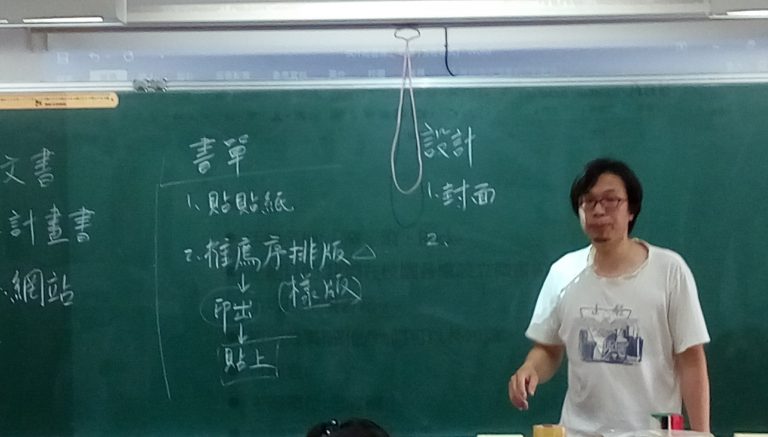 文書
計畫書
網站
書單
1. 貼貼紙
2. 推薦序排版△
↓ (樣版)
印出
↓
貼上
設計
1. 封面
2.